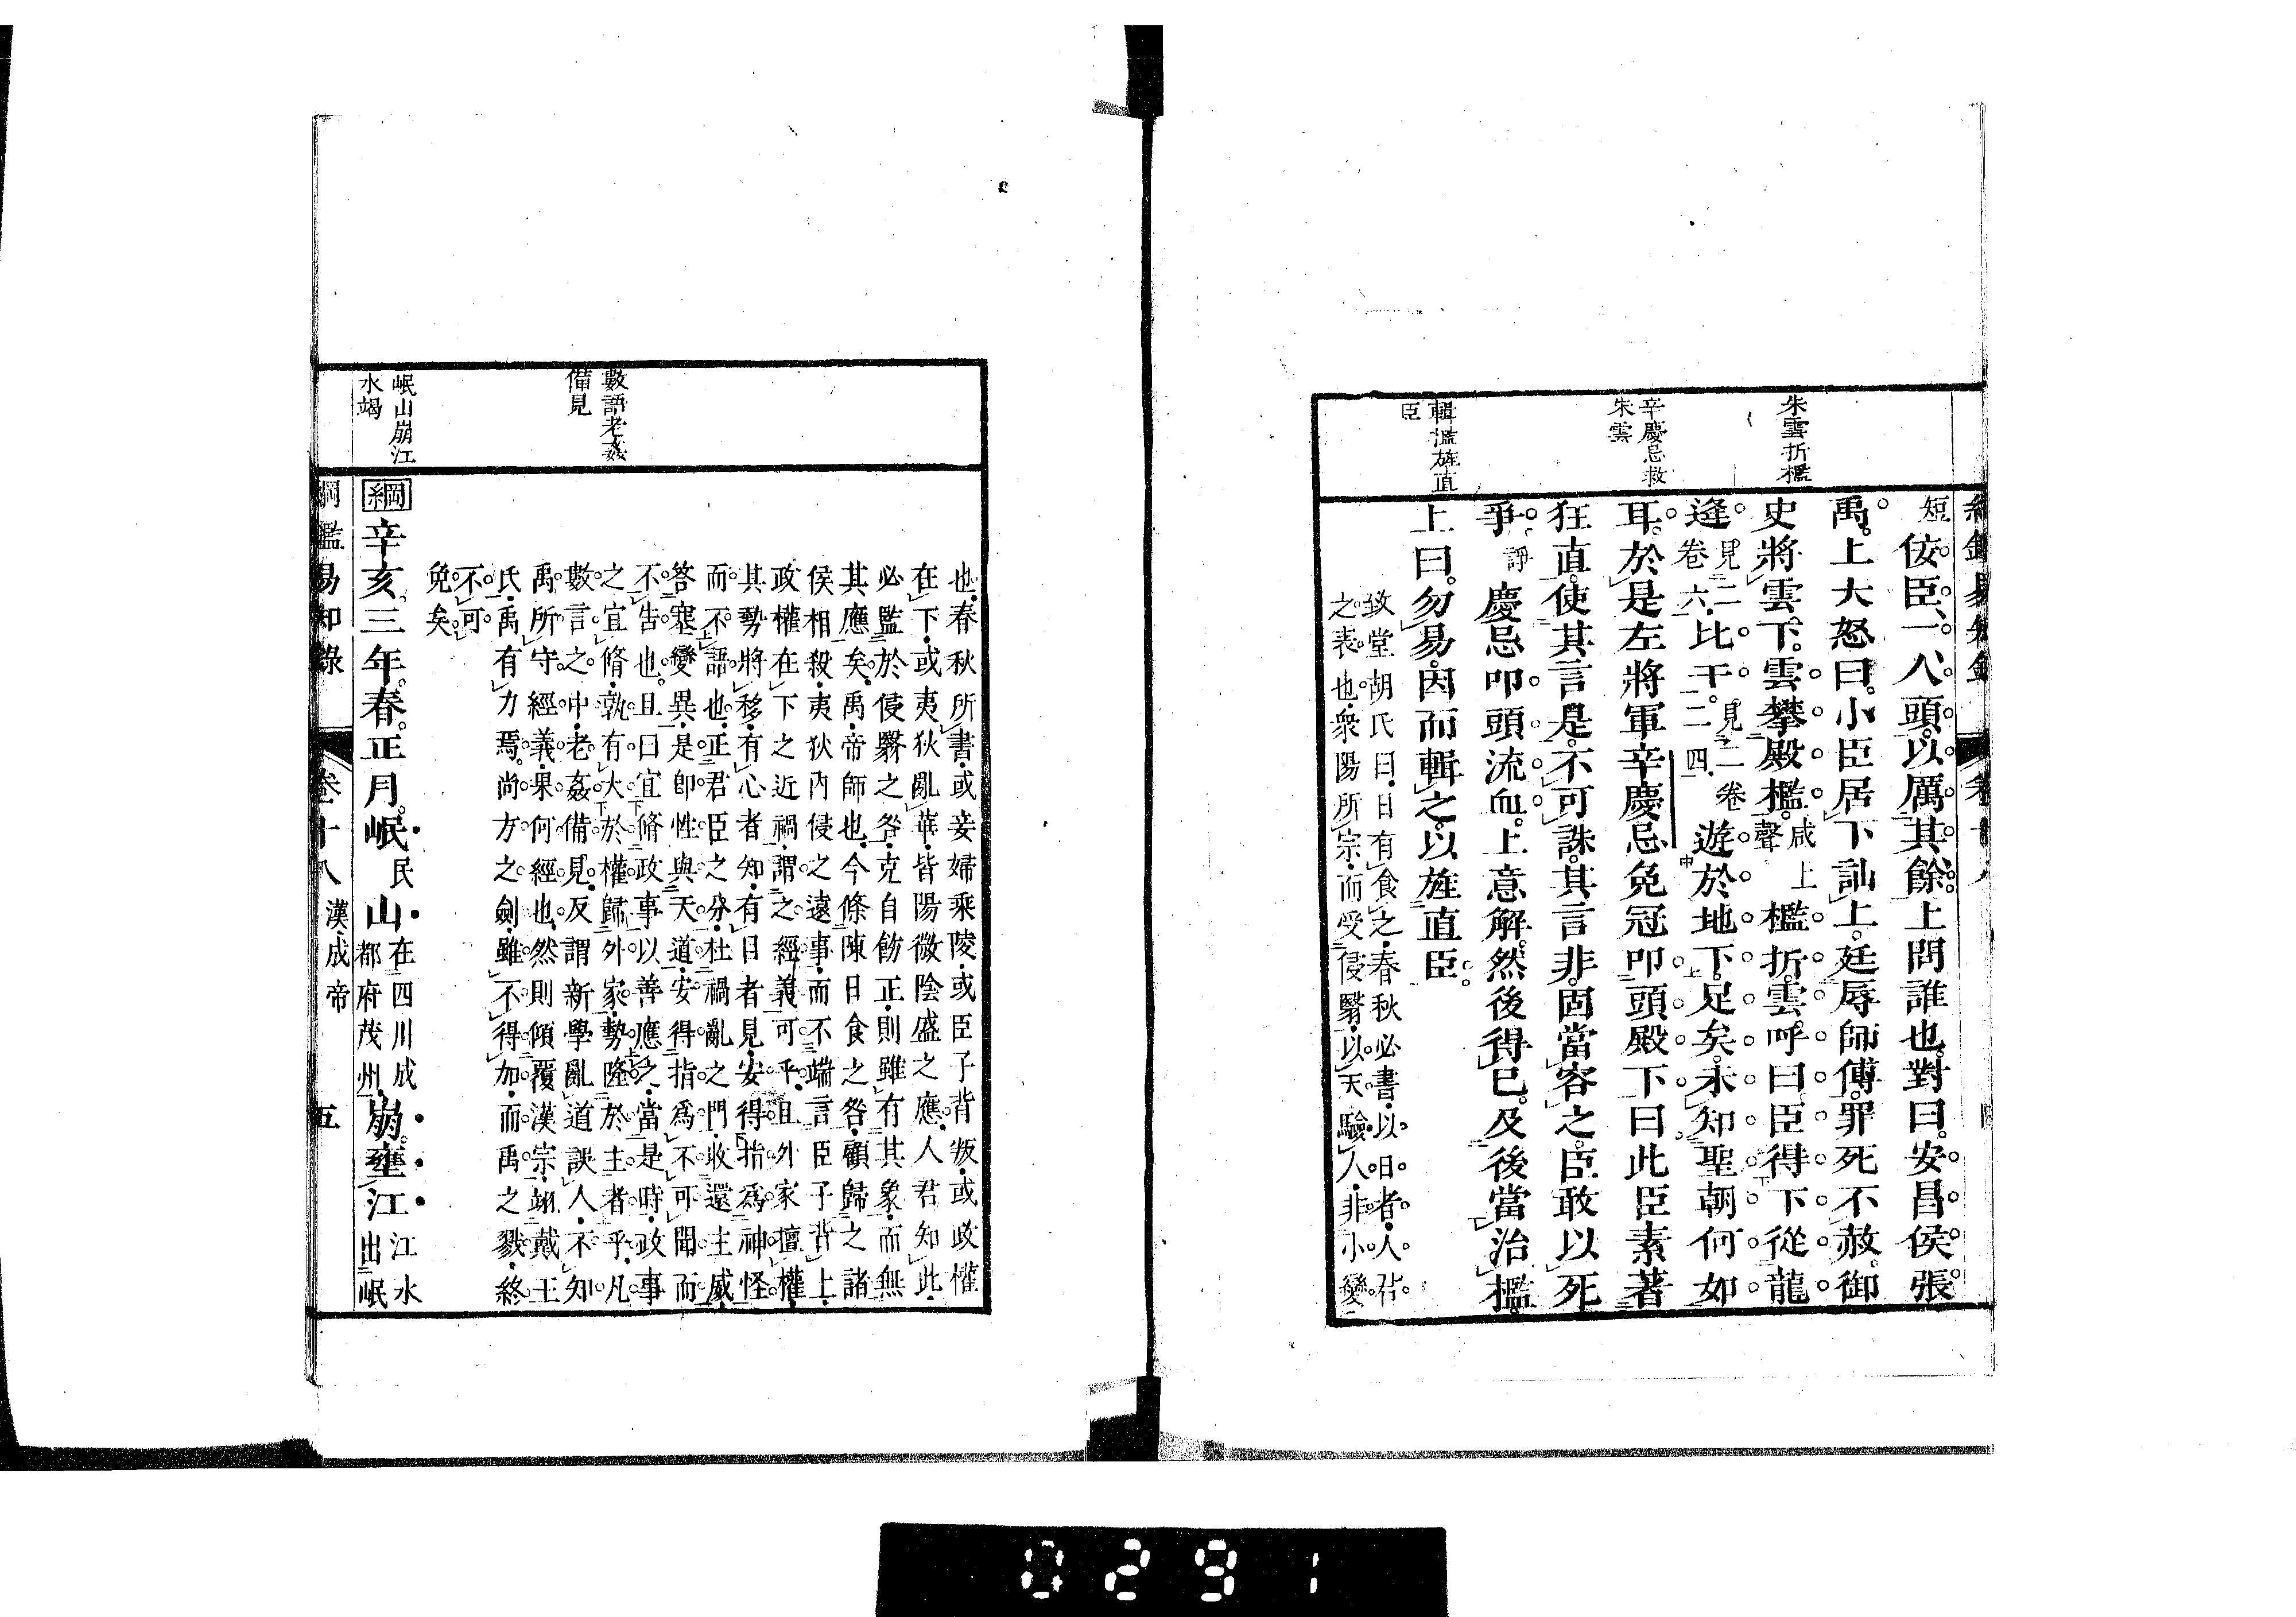 朱雲折檻
辛慶忌救
朱雲
輯檻旌直
臣
短佞臣一人頭以厲其餘上問誰也對曰安昌侯張
禹上大怒曰小臣居下訕上廷辱師傅罪死不赦御
史將雲下雲攀殿檻咸上聲檻折雲呼曰臣得下從龍
逄見二卷六比干見二卷二四遊於地下足矣未知聖朝何如
耳於是左將軍辛慶忌免冠叩頭殿下曰此臣素著
狂直使其言是不可誅其言非固當容之臣敢以死
爭諍慶忌叩頭流血上意解然後得已及後當治檻
上曰勿易因而輯之以旌直臣
致堂胡氏曰日有食之春秋必書以日者人君
之表也衆陽所宗而受侵翳以天驗人非小變
數語老姦
備見
岷山崩江
水竭
也春秋所書或妾婦乘陵或臣子背叛或政權
在下或夷狄亂華皆陽微陰盛之應人君知此
必監於侵翳之咎克自飭正則雖有其象而無
其應矣禹帝師也今條陳日食之咎顧歸之諸
侯相殺夷狄內侵之遠事而不端言臣子背上
政權在下之近禍謂之經義可乎且外家擅權
其勢將移有心者知有目者見安得指爲神怪
而不語也正君臣之分杜禍亂之門收還主威
答塞變異是卽性與天道安得指爲不可聞而
不吿也且曰宜脩政事以善應之當是時政事
之宜脩孰有大於權歸外家勢隆於主者乎凡
數言之中老姦備見反謂新學亂道誤人不知
禹所守經義果何經也然則傾覆漢宗翊戴王
氏禹有力焉尚方之劍雖不得加而禹之戮終
不可
免矣
綱辛亥三年春正月岷民山在四川成都府茂州崩壅江江水出岷
綱鑑易知錄 卷十八 漢成帝 五
0291